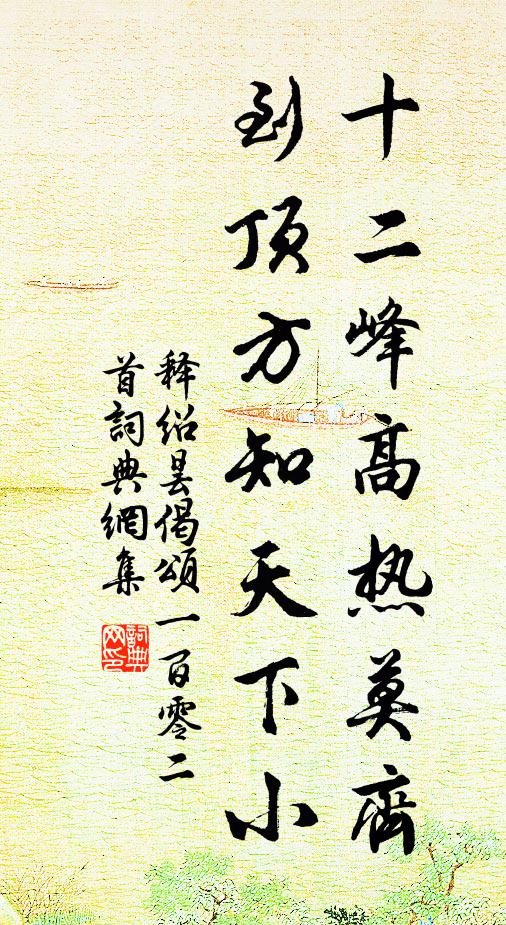 十二峰高热莫齊
到顶方知天下小
释绍昙偈頌一百零二
首詞典網集
詞典
网印